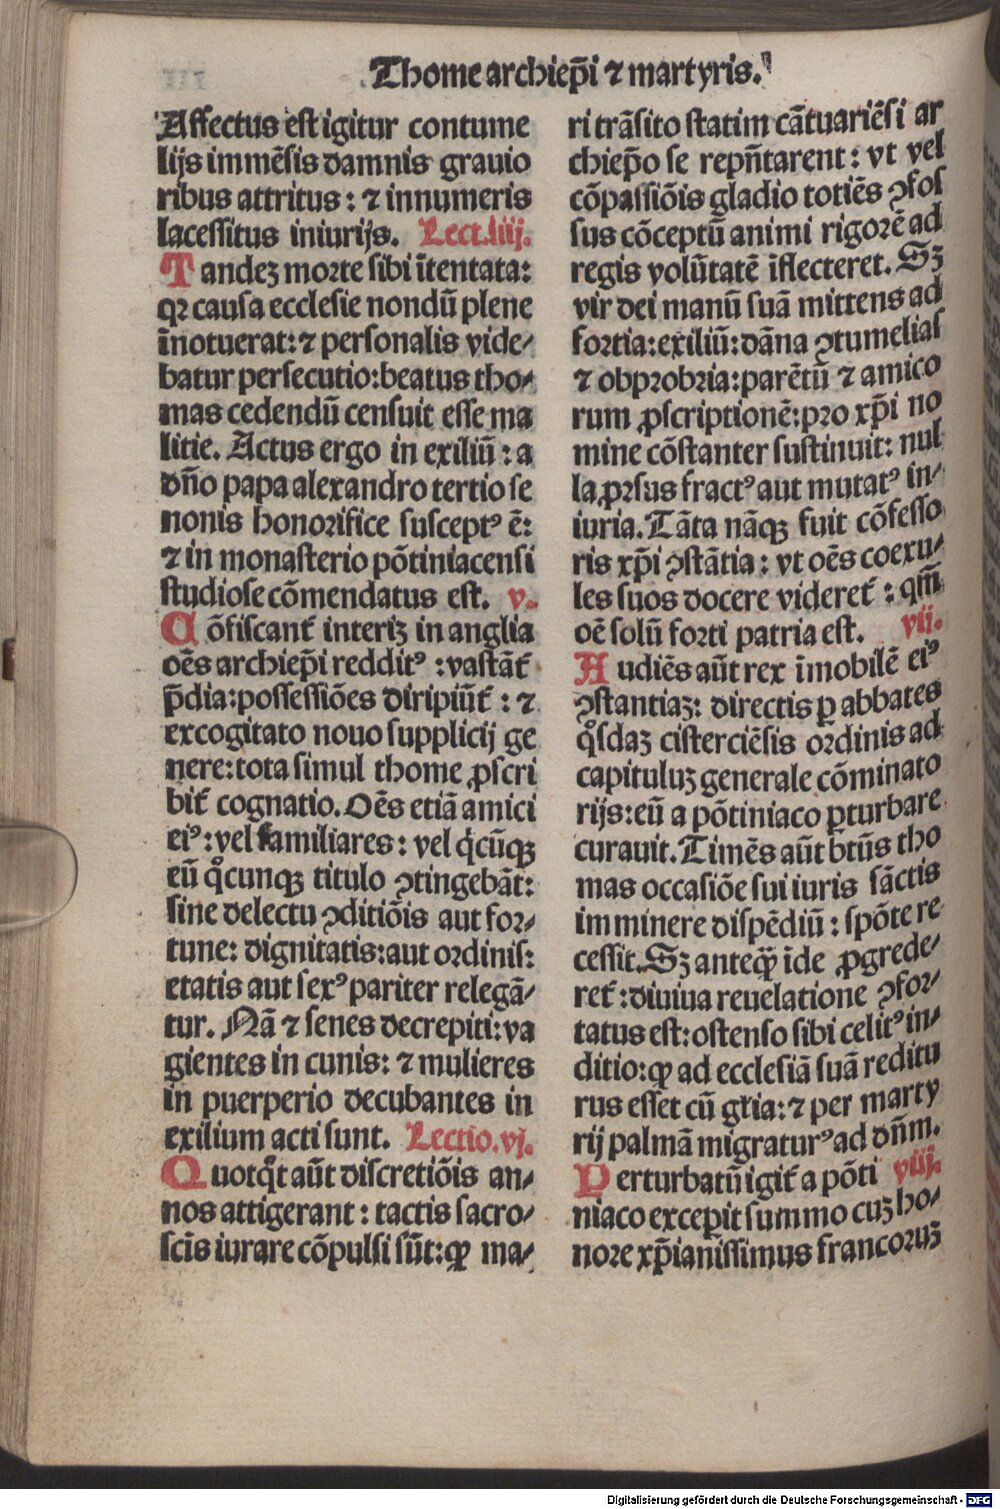 Thome archiep̄i ⁊ martyris.
Affectus est igitur contume
lijs immēsis damnis grauio
ribus attritus : ⁊ innumeris
lacessitus iniurijs. Lect.iiij.
Tandeꝫ morte sibi ītentata:
qꝛ causa ecclesie nondū plene
īnotuerat: ⁊ personalis vide⸗
batur persecutio: beatus tho⸗
mas cedendū censuit esse ma
litie. Actus ergo in exiliū : a
dn̄o papa alexandro tertio se
nonis honorifice susceptꝰ ē:
⁊ in monasterio pōtiniacensi
studiose cōmendatus est. v.
Cōfiscant᷑ interiꝫ in anglia
oēs archiep̄i redditꝰ : vastāt᷑
p̄dia: possessiōes diripiūt᷑ : ⁊
excogitato nouo supplicij ge
nere: tota simul thome ꝓscri
bit᷑ cognatio. Oēs etiā amici
eiꝰ : vel familiares : vel q̇cūqꝫ
eū q̊cunqꝫ titulo ꝯtingebāt:
sine delectu ꝯditiōis aut for⸗
tune: dignitatis: aut ordinis:
etatis aut sexꝰ pariter relegā⸗
tur. Nā ⁊ senes decrepiti: va
gientes in cunis: ⁊ mulieres
in puerperio decubantes in
exilium acti sunt. Lectio.vj.
Quotq̊t aūt discretiōis an⸗
nos attigerant : tactis sacro⸗
scīs iurare cōpulsi sūt: ꝙ ma⸗
ri trāsito statim cātuariēsi ar
chiep̄o se repn̄tarent : vt vel
cōpassiōis gladio totiēs ꝯfos
sus cōceptū animi rigorē ad
regis volūtatē īflecteret. Sꝫ
vir dei manū suā mittens ad
fortia: exiliū: dāna ꝯtumelias
⁊ obprobria: parētū ⁊ amico
rum ꝓscriptionē: pro xp̄i no
mine cōstanter sustinuit: nul
la ꝓrsus fractꝰ aut mutatꝰ in⸗
iuria. Tāta nāqꝫ fuit cōfesso
ris xp̄i ꝯstātia : vt oēs coexu⸗
les suos docere videret᷑ : qm̄
oē solū forti patria est. vij.
Audiēs aūt rex īmobilē eiꝰ
ꝯstantiaꝫ: directis ꝑ abbates
q̊sdaꝫ cisterciēsis ordinis ad
capituluꝫ generale cōminato
rijs: eū a pōtiniaco ꝑturbare
curauit. Timēs aūt btūs tho
mas occasiōe sui iuris sāctis
imminere dispēdiū : spōte re
cessit. Sꝫ anteqꝙ̄ īde ꝓgrede⸗
ret᷑ : diuiua reuelatione ꝯfor⸗
tatus est: ostenso sibi celitꝰ in⸗
ditio: ꝙ ad ecclesiā suā reditu
rus esset cū gl̄ia: ⁊ per marty
rij palmā migraturꝰ ad dn̄m.
Perturbatū igit᷑ a pōti viij.
niaco excepit summo cuꝫ ho⸗
nore xp̄ianissimus francoruꝫ
Digitalisierung gefördert durch die Deutsche Forschungsgemeinschaft - DFG